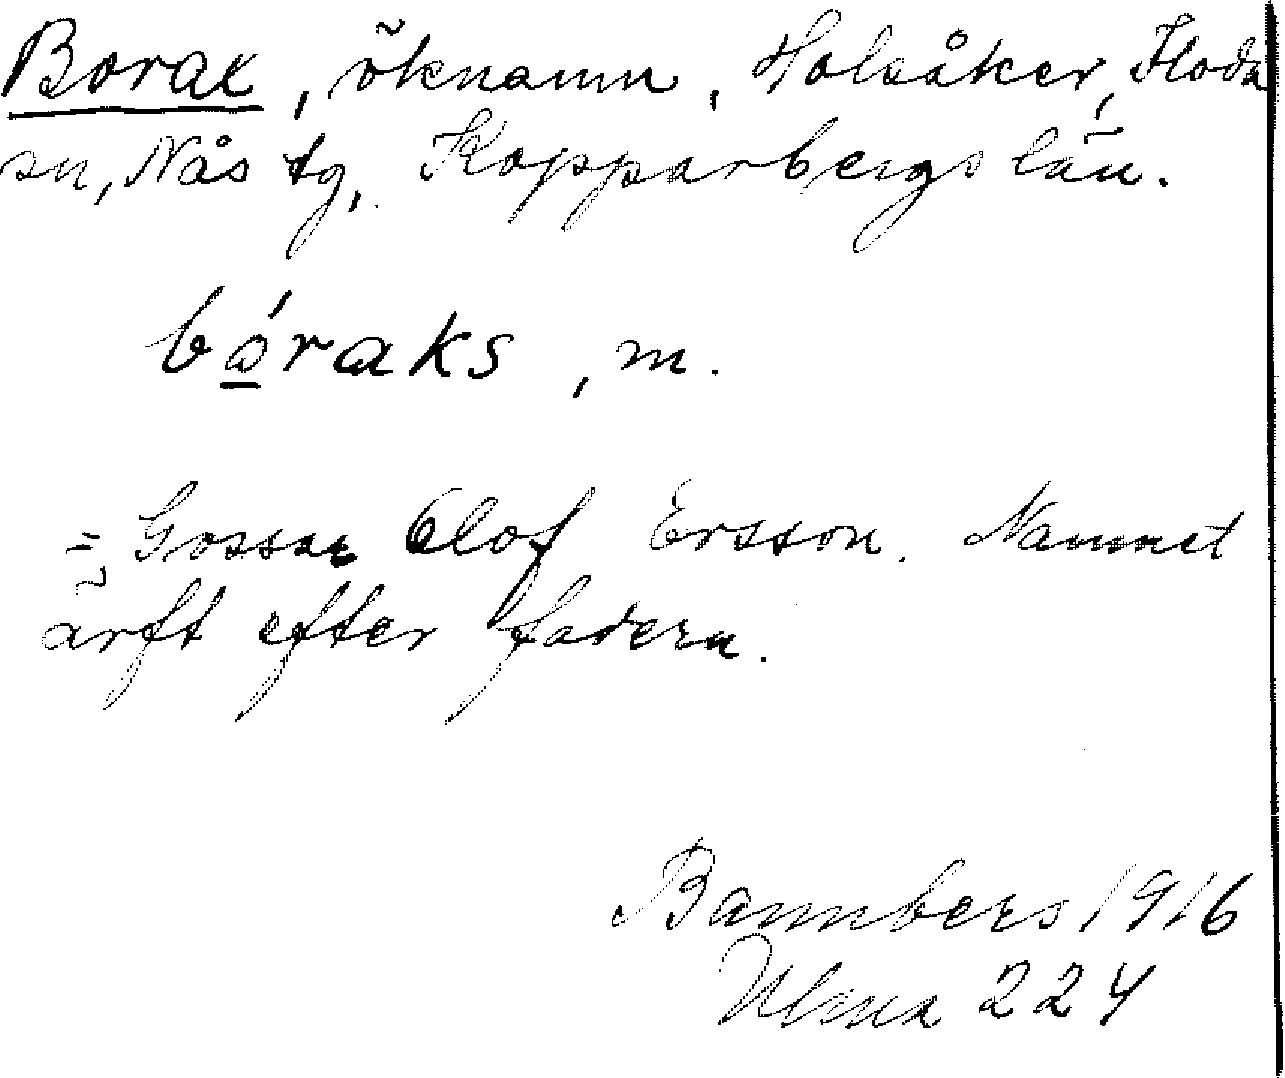 Borax, öknamn, Holsåker, Floda
sn, Nås tg, Kopparbergs län.
bóraks, m.
= Gossen Olof Ersson. Namnet
ärft efter fadern.
Bannbers 1916
Ulma 224